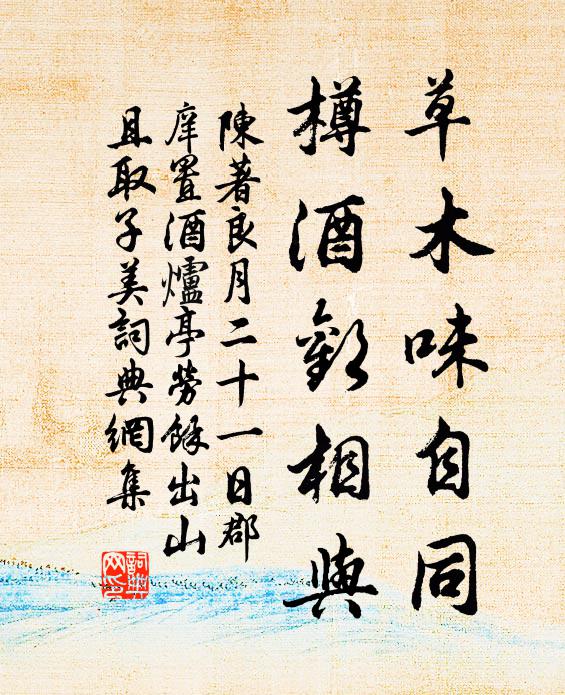 草木味自同
樽酒欵相與
陳著良月二十一日郡
庠置酒爐亭勞餘出山
且取子美詞典網集
詞典網